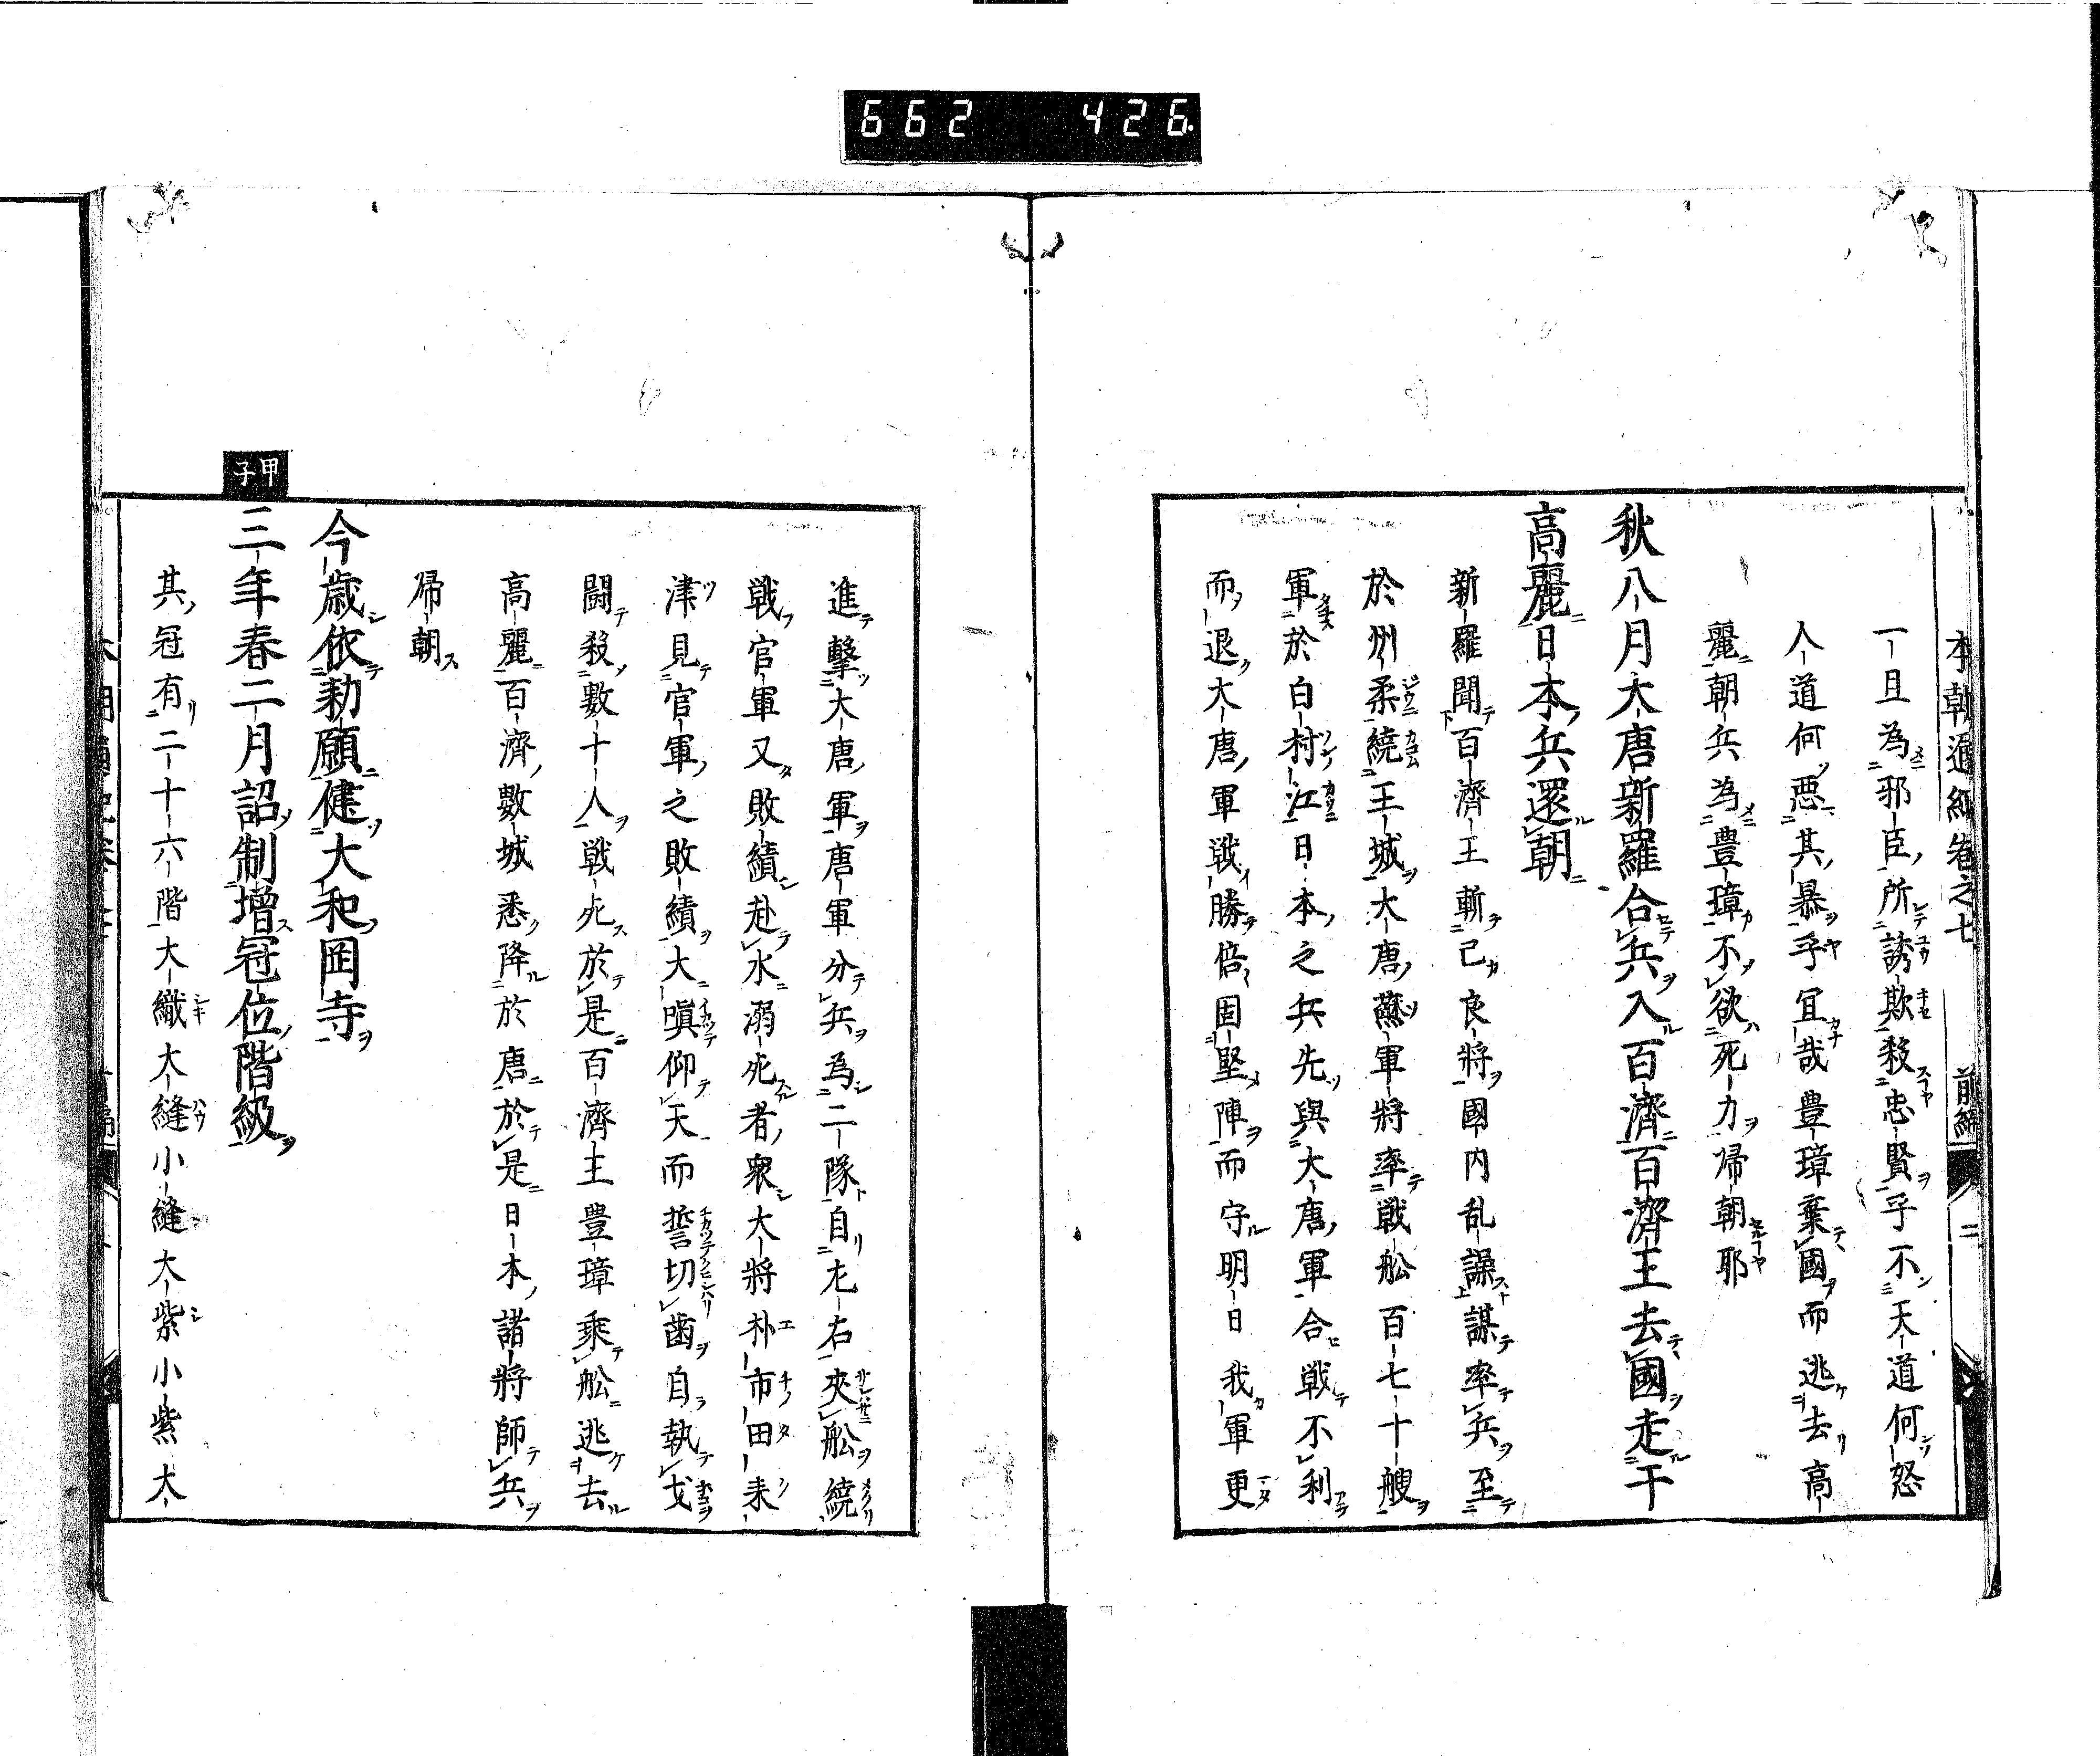 662 426
本朝通紀卷之七 前編 二
一旦為邪臣所誘欺殺忠賢乎不天道何怒
人道何悪其暴乎宜哉豊璋棄國而逃去高
麗朝兵為豊璋不欲死力帰朝耶
秋八月大唐新羅合兵入百濟百濟王去國走于
高麗日本兵還朝
新羅聞百濟王斬己良將國内乱譟謀率兵至
於州柔繞王城大唐蘇軍將率戦舩百七十艘
軍於白村江日本之兵先與大唐軍合戦不利
而退大唐軍戦勝倍固堅陣而守明日我軍更
進擊大唐軍唐軍分兵為二隊自左右夾舩繞
戦官軍又敗績赴水溺死者衆大將朴市田来
津見官軍之敗績大嗔仰天而誓切歯自執戈
闘殺數十人戦死於是百濟王豊璋乘舩逃去
高麗百濟數城悉降於唐於是日本諸將師兵
帰朝
今歳依勅願健大和岡寺
甲子
三年春二月詔制増冠位階級
其冠有二十六階大織大縫小縫大紫小紫大